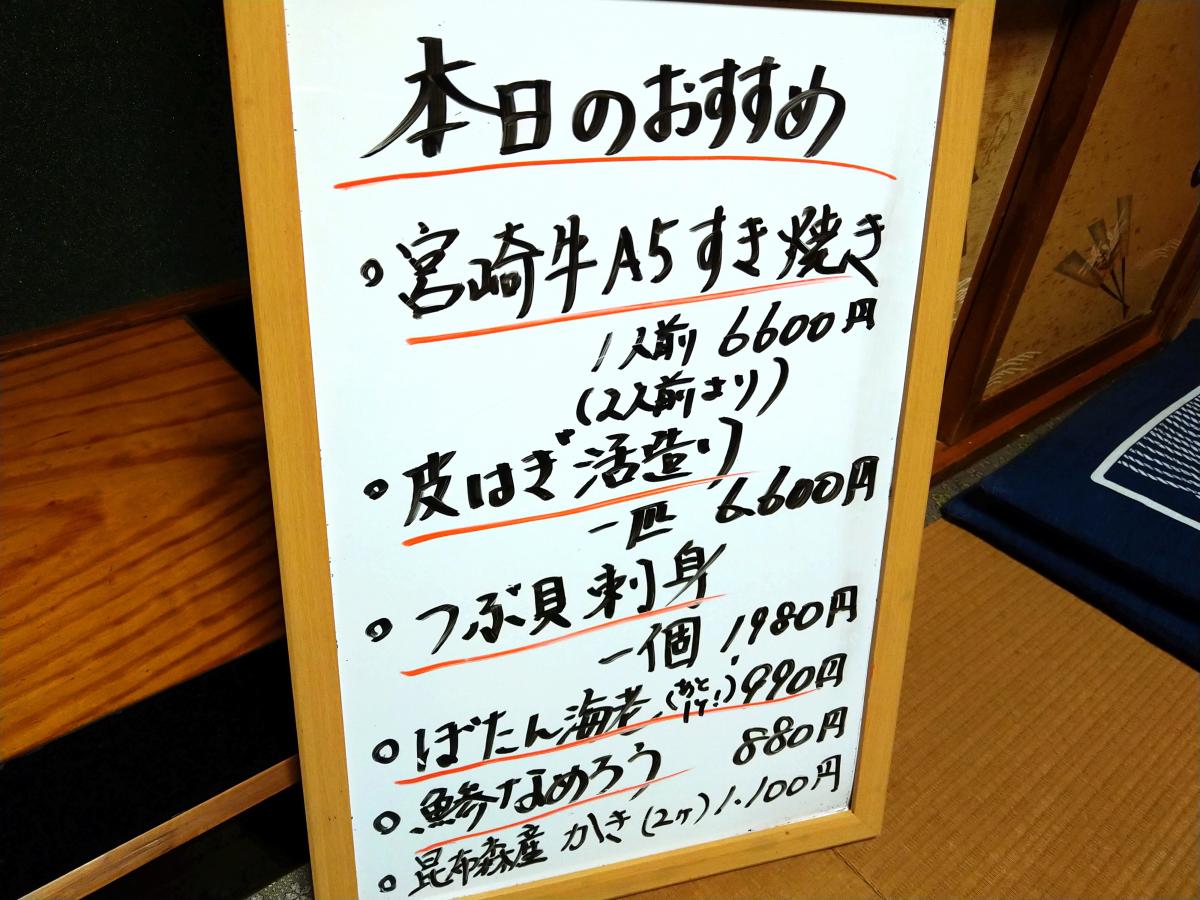 本日のおすすめ
宮崎牛A5すき焼き
1人前 6600円
(2人前より)
皮はぎ活造り
一匹 6.600円
つぶ貝刺身
一個 1,980円
ぼたん海老(あと1ケ!)990円
鯵なめろう 880円
昆布森産 かき(2ケ)1.100円